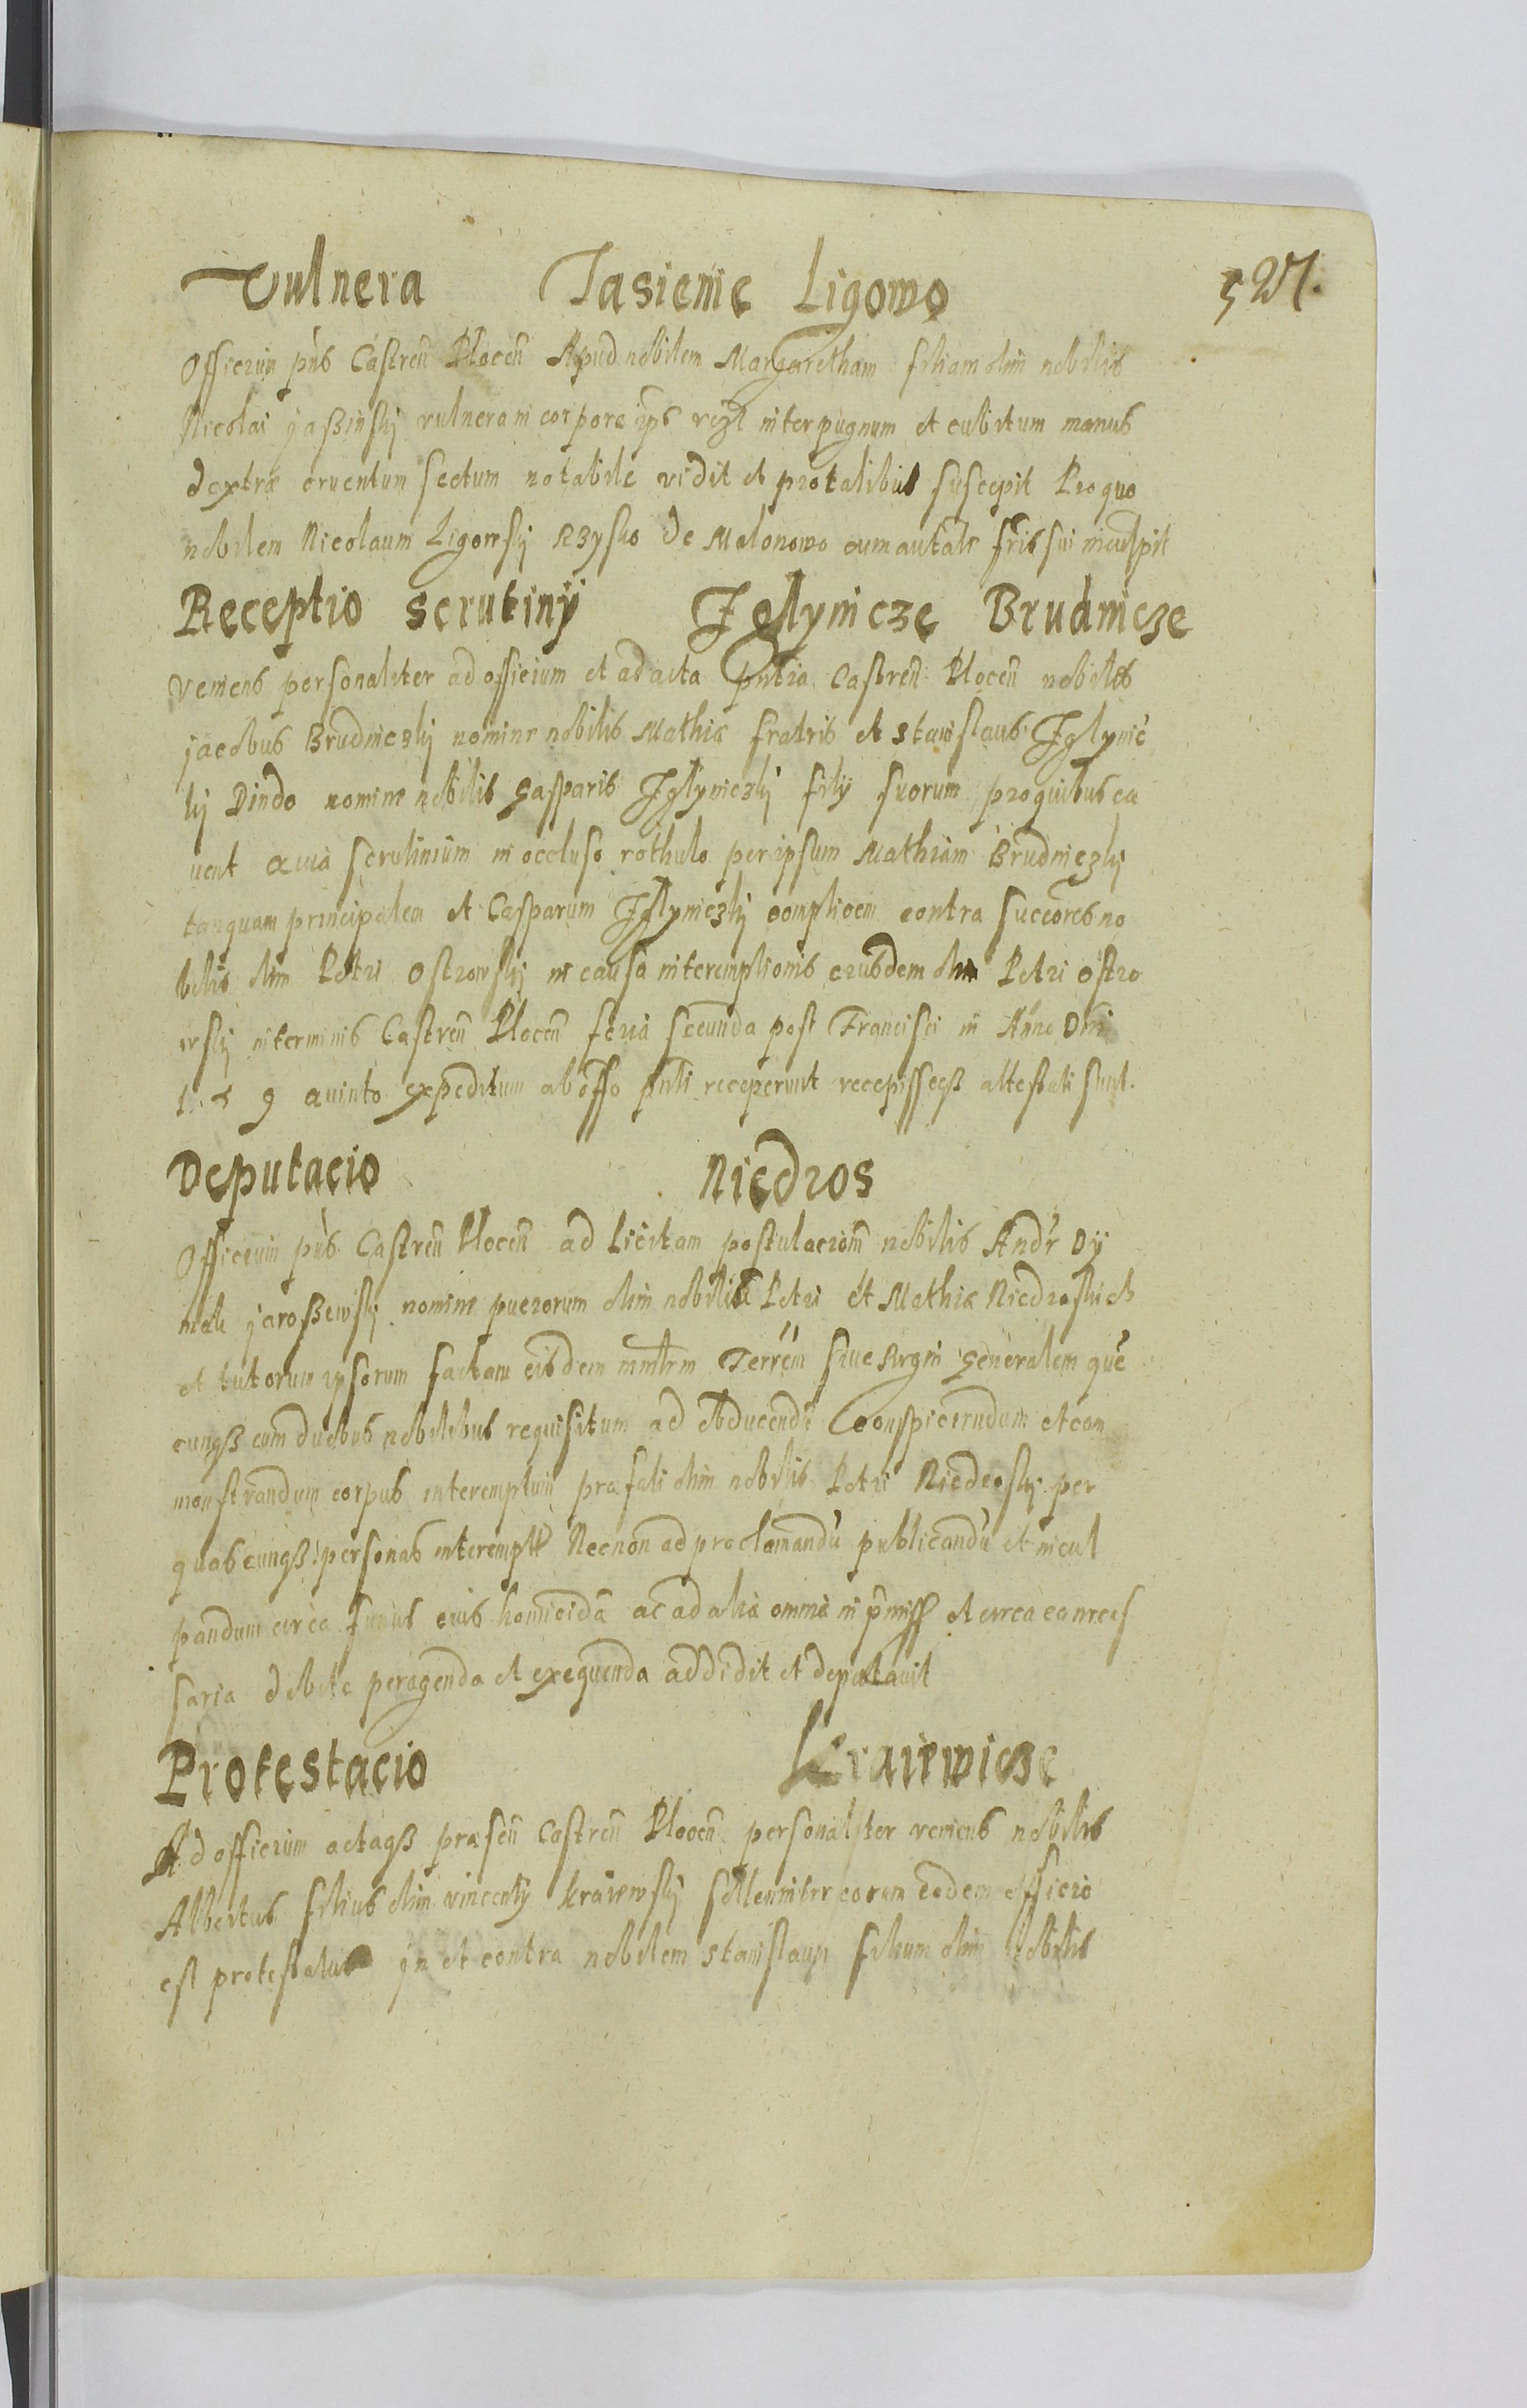 Vulnera Jasienie Ligowo 527.
Officium pñs Castreñ Ploceñ Apud nobilem Margaretham filiam olim nobilis
Nicolai jaßinskj vulnera in corpore ips videl inter pugnum et cubitum manus
dextræ cruentum sectum notabile vidit et pro talibus suscepit Pro quo
nobilem Nicolaum Ligowskj Rzysko de Malonowo eum aut alr fris sui inculpit
Receptio scrutinÿ Iglynicze Brudnicze
Veniens personaliter ad officium et ad acta pñtia Castreñ Ploceñ nobiles
jacobus Brudniczkj nomine nobilis Mathiæ fratris et stanislaus Iglynic
kj Dindo nomine nobilis Gasparis Iglyniczkj filÿ suorum pro quibus ca
uent scrutinium in occluso rothulo per ipsum Mathiam Brudniczkj
tanquam principalem et Casparum Iglyniczkj complicem contra succores no
bilis olim Petri Ostrowskj in causa interemptionis eiusdem olim Petri ostro
wskj in terminis Castreñ Ploceñ feria secunda post Francisci in Anno Dni
expeditum ab offo pñti receperunt recepisseqß attestati sunt.
Deputacio Niedros
Officium pñs Castreñ Ploceñ ad Licitam postulacionẽ nobilis Andr Dÿ
jaroßewskj nomine puerorum olim nobiliũ Petri et Mathiæ Niedroskich
et tutorum ipsorum factam eisdem mnstrm Terreñ siue Regni Generalem que
cunqß cum duobus nobilibus requisitum ad obducendũ Conspiciendum et com
monstrandum corpus interemptum præfati olim nobilis Petri Niedroskj per
quascunqß personas interempt Necnon ad proclamandũ publicandũ et incul
pandum circa funus eius homicidã ac ad alia omnia in pmiss et circa ea neces
saria debite peragenda et exequenda addidit et deputauit
Protestacio Kraiewicze
Ad officium actaqß præseñ Castreñ Ploceñ personaliter veniens nobilis
Albertus filius olim vincentÿ kraiewskj sollenniter coram eodem officio
est protestatus jn et contra nobilem stanislaum filium olim nobilis